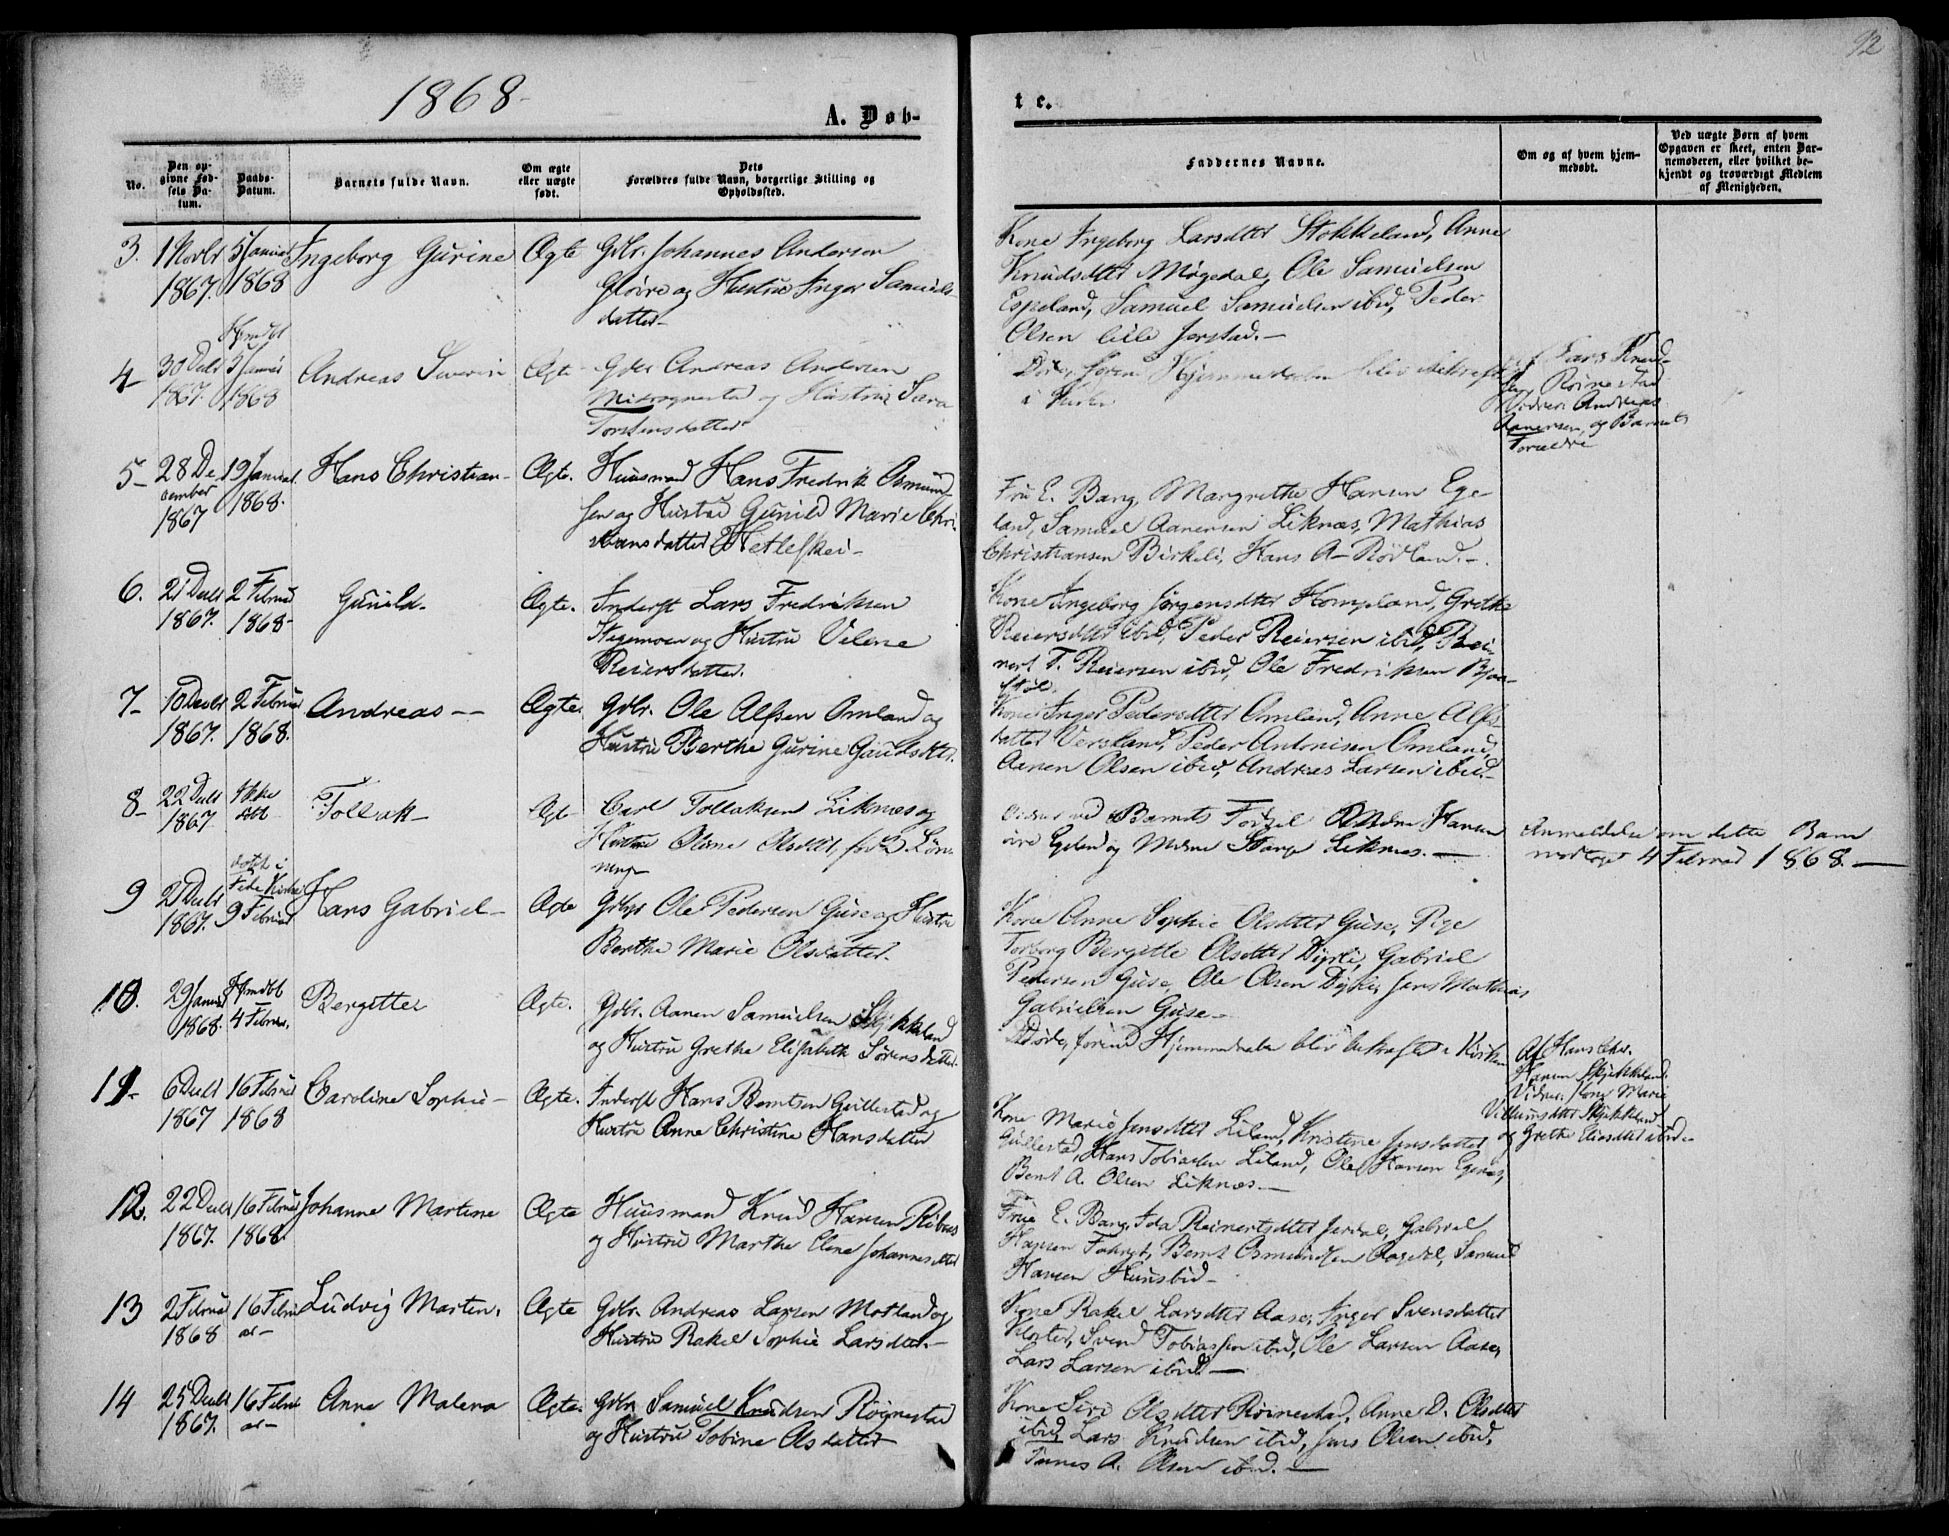 92
1868
A. Døb-
te.
No.
Den op-
givne Fød-
sels Da-
tum.
Daabs-
Datum.
Barnets fulde Navn.
Om ægte
eller uægte
født.
Dets
Forældres fulde Navn, borgerlige Stilling og
Opholdssted.
Faddernes Navne.
Om og af hvem hjem-
medøbt.
Ved uægte Børn af hvem
Opgaven er skeet, enten Bar-
nemoderen, eller hvilket be-
kjendt og troværdigt Medlem
af Menigheden.
3. 1 Novbr 5 Januar Ingeborg Gurine Ægte Gdbr. Johannes Andersen
1867. 1868
og Hustru Inger Samuels-
datter
Kone Ingeborg Larsdtter Stokkeland, Anne
Knudsdtter Møgedal, Ole Samuelsen
Espeland, Samuel Samuelsen ibid, Peder
Olsen lille Jerstad.
Hjmdbt
4 30 Decbr 5 Januar Andreas Severin Ægte Gdbr Andreas Andersen
1867. 1868
og Hustru Sara
Torkensdatter
Døde, førend Hjemmedaaben blev bekræftet
i Kirken
af Lars Knud-
sen Röinestad
Vidner: Andreas
Aanensen, og Barnets
Forældre
5 28 De- 19 Januar Hans Christian Ægte. Huusmand Hans Fredrik Osmund-
cember 1868.
1867
sen og Hustru Gunild Marie Chri-
stiansdatter Hetleskei
Fru E. Bang, Margrethe Hansen Ege-
land, Samuel Aanensen Liknæs, Mathias
Christiansen Birkeli, Hans A. Rödland.
6. 21 Decbr 2 Februar Gunild. Ægte. Inderst Lars Fredriksen
1867. 1868
og Hustru Velene
Reiersdatter.
Kone Ingeborg Jørgensdtter Hompland, Grethe
Reiersdtter ibid, Peder Reiersen ibid, Rei-
nert T. Reiersen ibid, Ole Fredriksen
7 10 Decbr 2 Februar Andreas Ægte. Gdbr. Ole Alfsen Omland og
1867. 1868.
Hustru Berthe Gurine Gaudsdtter.
Kone Inger Pedersdtter Omland, Anne Alfs-
datter Versland, Peder Antonisen Omland,
Aanen Olsen ibid, Andreas Larsen ibid
8 22 Decbr Ikke Tollak Ægte Carl Tollaksen Liknæs og
1867 døbt
Hustru Oline Olsdtter, født Løn-
ning
Vidner ved Barnets Fødsel Madme Hansen
øvre Egeland og Madme Stange Liknæs.
Anmeldelse om dette Barn
modtaget 4 Februar 1868.
døbt i
Fede Kirke
9 21 Decbr 9 Februar Hans Gabriel Ægte Gdbr Ole Pedersen Guse og Hustru
1867.
Berthe Marie Olsdatter.
Kone Anne Sophie Olsdtter Guse, Pige
Torborg Bergitte Olsdtter Dyrli, Gabriel
Pedersen Guse, Ole Olsen Dyrli, Jens Mathias
Gabrielsen Guse
10. 29 Januar Hjmdbt Bergitte Ægte. Gdbr. Aanen Samuelsen Skjekkeland
1868. 4 Februar
og Hustru Grethe Elisabeth Sørensdatter
Døde, førend Hjemmedaaben blev bekræftet i Kirken
Af Hans Chr.
Hansen Skjekkeland.
Vidner: Kone Marie
Villumsdtter Skjekkeland
og Grethe Eliasdtter ibid.
11 6 Decbr 16 Februar Caroline Sophie Ægte. Inderst Hans Berntsen Gullestad og
1867 1868
Hustru Anne Christine Hansdatter
Kone Marie Jensdtter Liland, Kristine Jensdatter
Gullestad, Hans Tobiassen Liland, Ole Hansen Egenæs,
Bent A. Olsen Liknæs.
12. 22 Decbr 16 Februar Johanne Martine Ægte Huusmand Knud Hansen
1867. 1868
og Hustru Marthe Elene Johannesdtter
Frue E. Bang, Ida Reinertsdtter Jerdal, Gabriel
Hansen Bernt Osmundsen Samuel
Hansen Hunsbed
13 2 Februar 16 Febru- Ludvig Martin. Ægte Gdbr. Andreas Larsen Motland og
1868 ar
Hustru Rakel Sophie Larsdtter.
Kone Rakel Larsdtter Aase, Inger Svensdatter
Kloster, Svend Tobiassen ibid, Ole Larsen Aase,
Lars Larsen ibid
14 25 Decbr 16 Febru- Anne Malena Ægte. Gdbr Samuel Knudsen Röynestad
1867. ar
og Hustru Tobine Olsdatter
Kone Siri Olsdtter Röinestad, Anne D. Olsdtter
ibid, Lars Knudsen ibid, Jens Olsen ibid,
A. Olsen ibid.